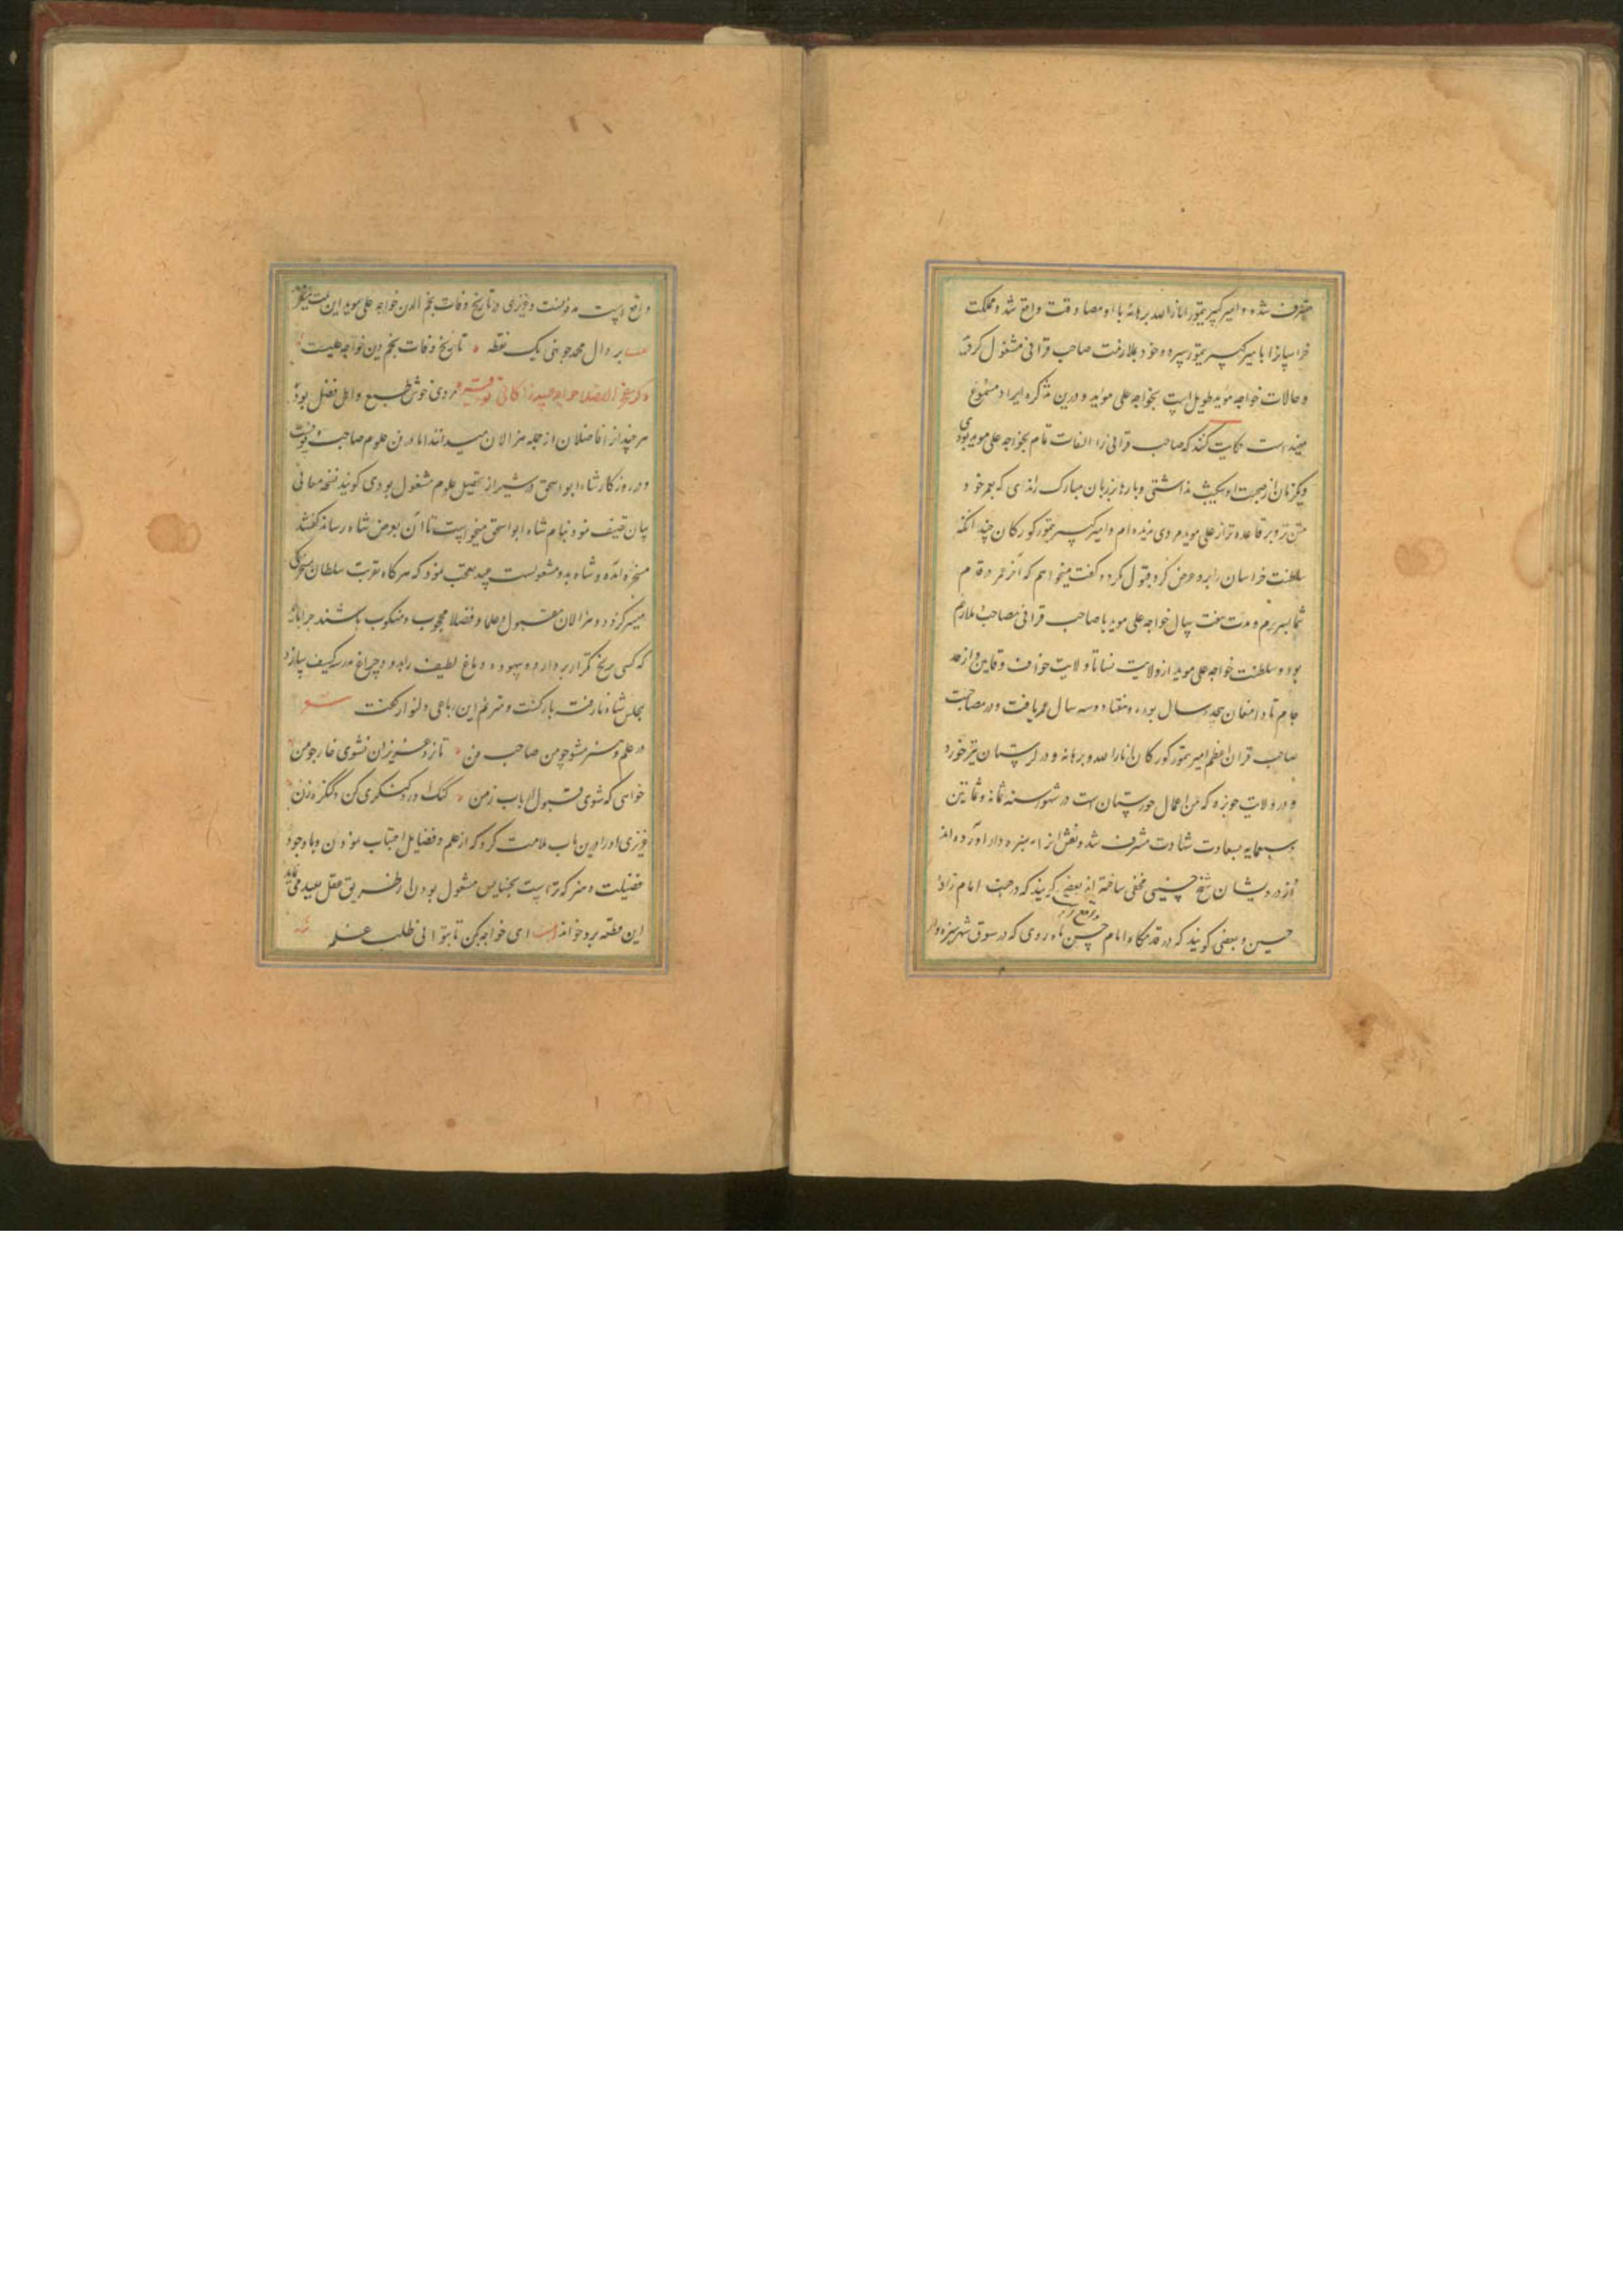 متصرف شده و امیر کبیر تیمور انار الله برهانه با او مصادقت واقع شد و مملکت
خراسان را با میر کبیر تیمور سپرده و خود بملازمت صاحب قرانی مشغول
و حالات خواجه مؤید طویل است بخواجه علی مؤید و درین تذکره ایراد مجموع
حکایت کنند که صاحب قرانی را التفات تمام بخواجه علی موید بودی
و یکزمان از صحبت او نگذاشتی و بارها بر زبان مبارک راندی که بعمر خود
تر و بر قاعده تر از علی موید مردی ندیده ام و امیر کبیر تیمور کورکان چند انکه
سلطنت خراسان را بدو عرض کرد قبول نکرد و گفت میخواهم که آخر عمر در قدم
شما بسر برم و مدت هفت سال خواجه علی موید با صاحب قرانی مصاحب و ملازم
بود و سلطنت خواجه علی موید از ولایت نسا تا ولایت خواف و قاین و از حد
جام تا دامغان سال بود و هفتاد و سه سال عمر یافت و در مصاحبت
صاحب قران اعظم امیر تیمور کورکان انار الله برهانه و در لرستان تیر خورد
و در ولایت حویزه که من اعمال خوزستان است در شهور سنه ثمان و ثمانین
و سبعمایه بسعادت شهادت مشرف شد و نعش او را بسبزوار آورده اند
و از درویشان شیخ حسینی مخفی ساخته اند بعضی گویند که در جنب امام زاده
حسین و بعضی گویند که در قدمگاه امام حسن که در سوق شهر سبزوار
واقع است مدفونست و عزیزی در تاریخ وفات نجم الدین خواجه علی موید این بیت میفرماید
بر دال محمد چو نهی یک نقطه تاریخ وفات نجم دین خواجه علیست
ذکر خواجه عبید زاکانی مردی خوش طبع و اهل فضل بوده
هر چند از افاضلان از جمله هزالان میدانند اما در فن علوم صاحب وقوفست
و در روزگار شاه ابو اسحق در شیراز بتحصیل علوم مشغول بودی گویند نسخه معانی
بیان تصنیف نمود بنام شاه ابو اسحق میخواست تا آن بعرض شاه رساند گفتند
مسخره آمده و شاه بدو مشغولست عبید تعجب نمود که هرگاه تقرب سلطان بمسخرگی
میسر گردد و هزالان مقبول و علما و فضلا محجوب و منکوب باشند چرا باید
که کسی برنج تکرار پردازد و بیهوده دماغ لطیف را بدود چراغ مدرسه کثیف سازد
بمجلس شاه نارفته بازگشت و مترنم این رباعی دلنواز گشت
در علم و هنر مشو چو من صاحب فن تا نزد عزیزان نشوی خار چو من
خواهی که شوی قبول ارباب زمن کنگ آور و کنگری کن و کنگره زن
عزیزی او را درین باب ملامت کرد که از علم و فضایل اجتناب نمودن و با وجود
فضیلت و هنر که تراست بخسایس مشغول بودن از طریق عقل بعید می نماید
این قطعه برو خواند ای خواجه مکن تا بتوانی طلب علم